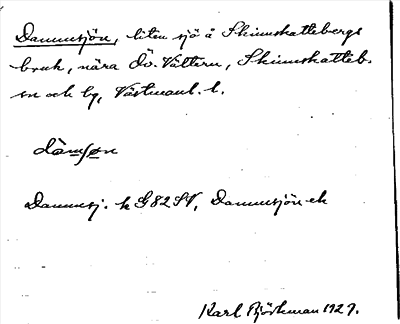 Dammsjön, liten sjö å Skinnskattebergs
bruk, nära Öv. Vättern, Skinnskatteb.
sn och bg, Västmanl. l.
dàmʃøn
Dammsj. k G82SV, Dammsjön ek
Karl Björkman 1929.